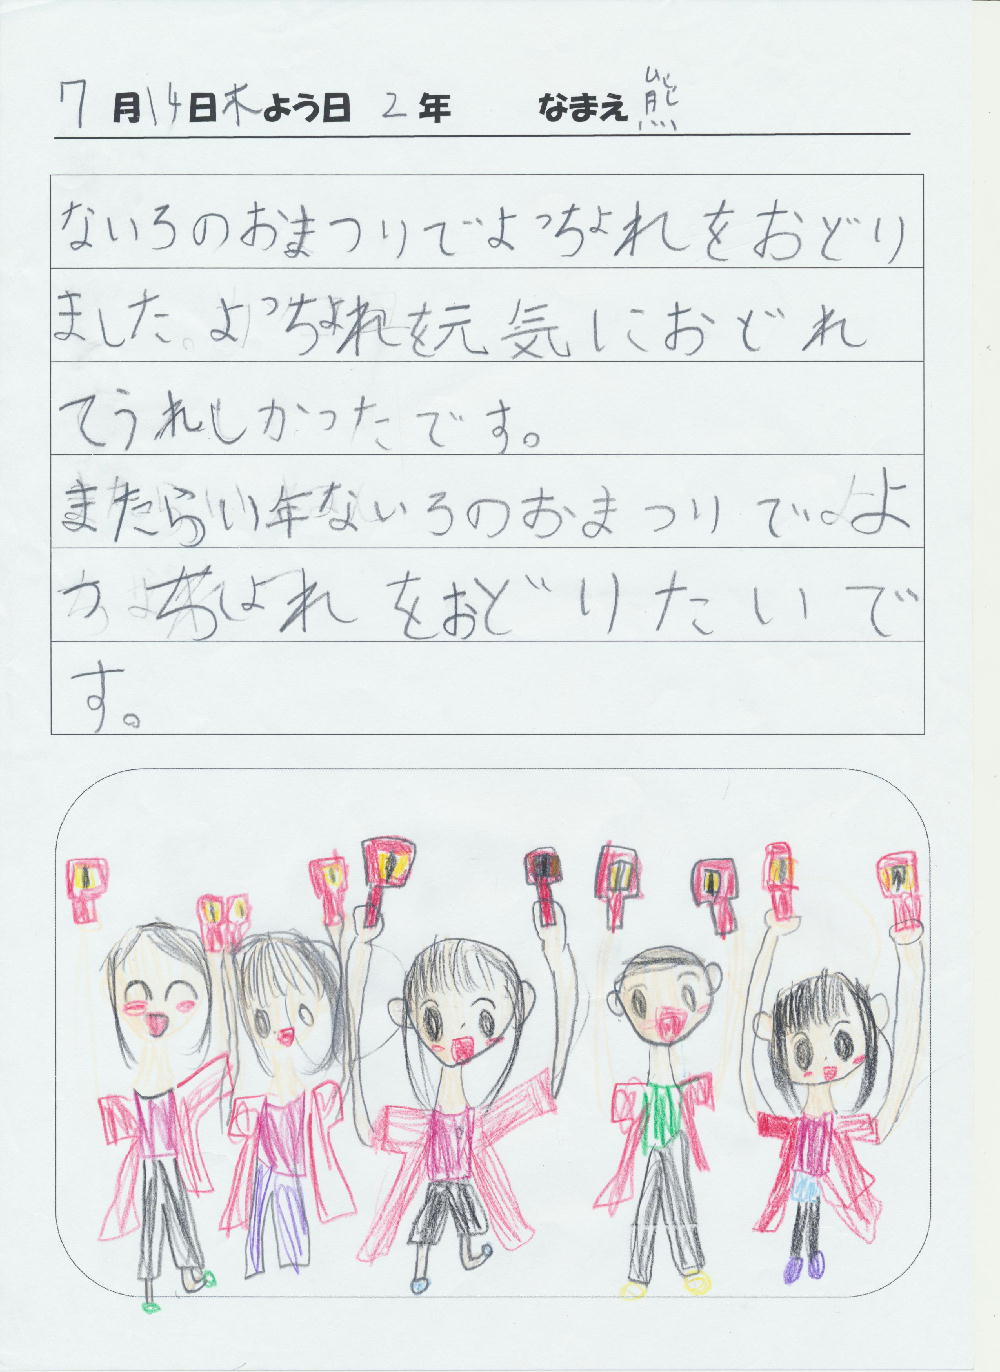 7月14日木よう日 2年 なまえ 熊
ないろのおまつりでよっちょれをおどり
ました。よっちょれを元気におどれ
てうれしかったです。
またらい年ないろのおまつりでよ
っちょれをおどりたいで
す。